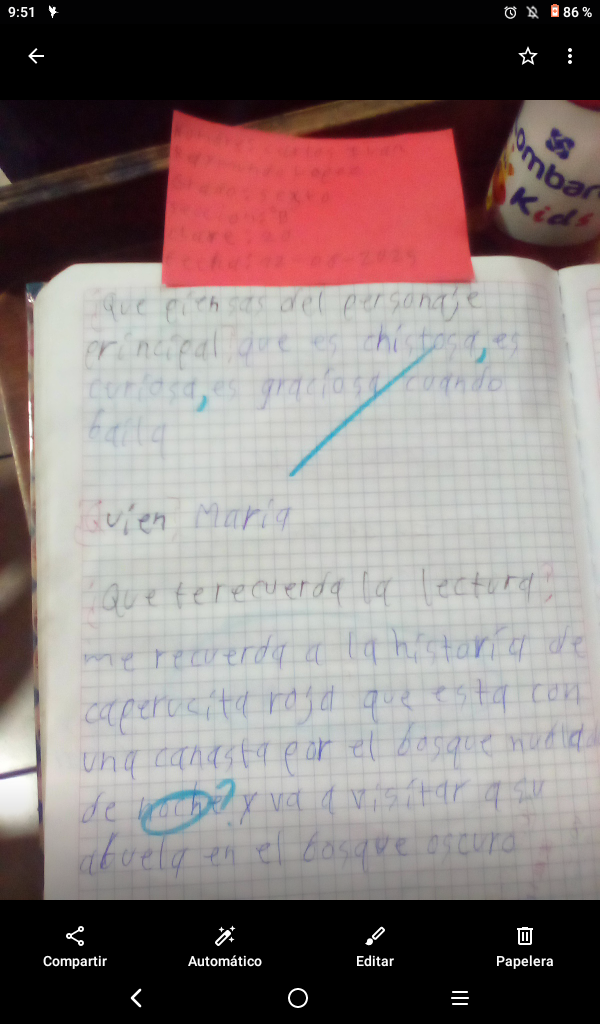 9:51
86 %
ombar
Kids
sexto
¿Que piensas del personaje
principal que es chistosa, es
curiosa, es graciosa cuando
baila
Quien Maria
¿Que te recuerda la lectura?
me recuerda a la historia de
caperucita roja que esta con
una canasta por el bosque nublado
de noche? y va a visitar a su
abuela en el bosque oscuro
Compartir
Automático
Editar
Papelera